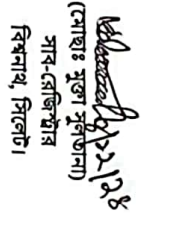 (মোছাঃ মুক্তা সুলতানা)
সাব-রেজিস্ট্রার
বিশ্বনাথ, সিলেট।